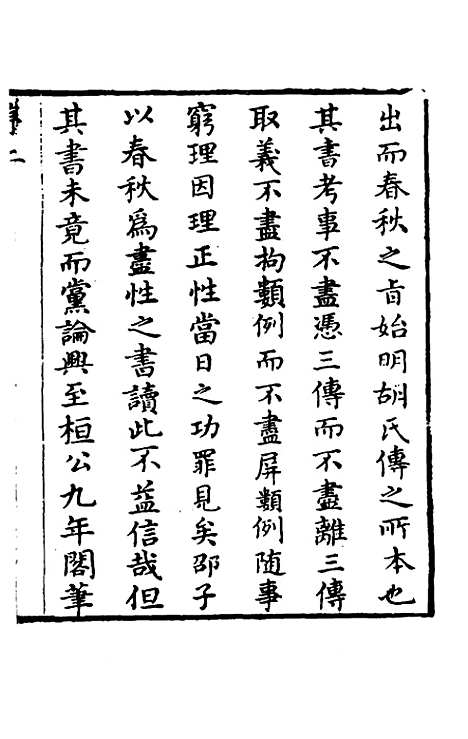 出而春秋之㫖始明胡氏傳之所本也
其書考事不盡憑三傳而不盡離三傳
取義不盡拘類例而不盡屏類例随事
窮理因理正性當日之功罪見矣邵子
以春秋爲盡性之書讀此不益信哉但
其書未竟而黨論興至桓公九年閣筆
二